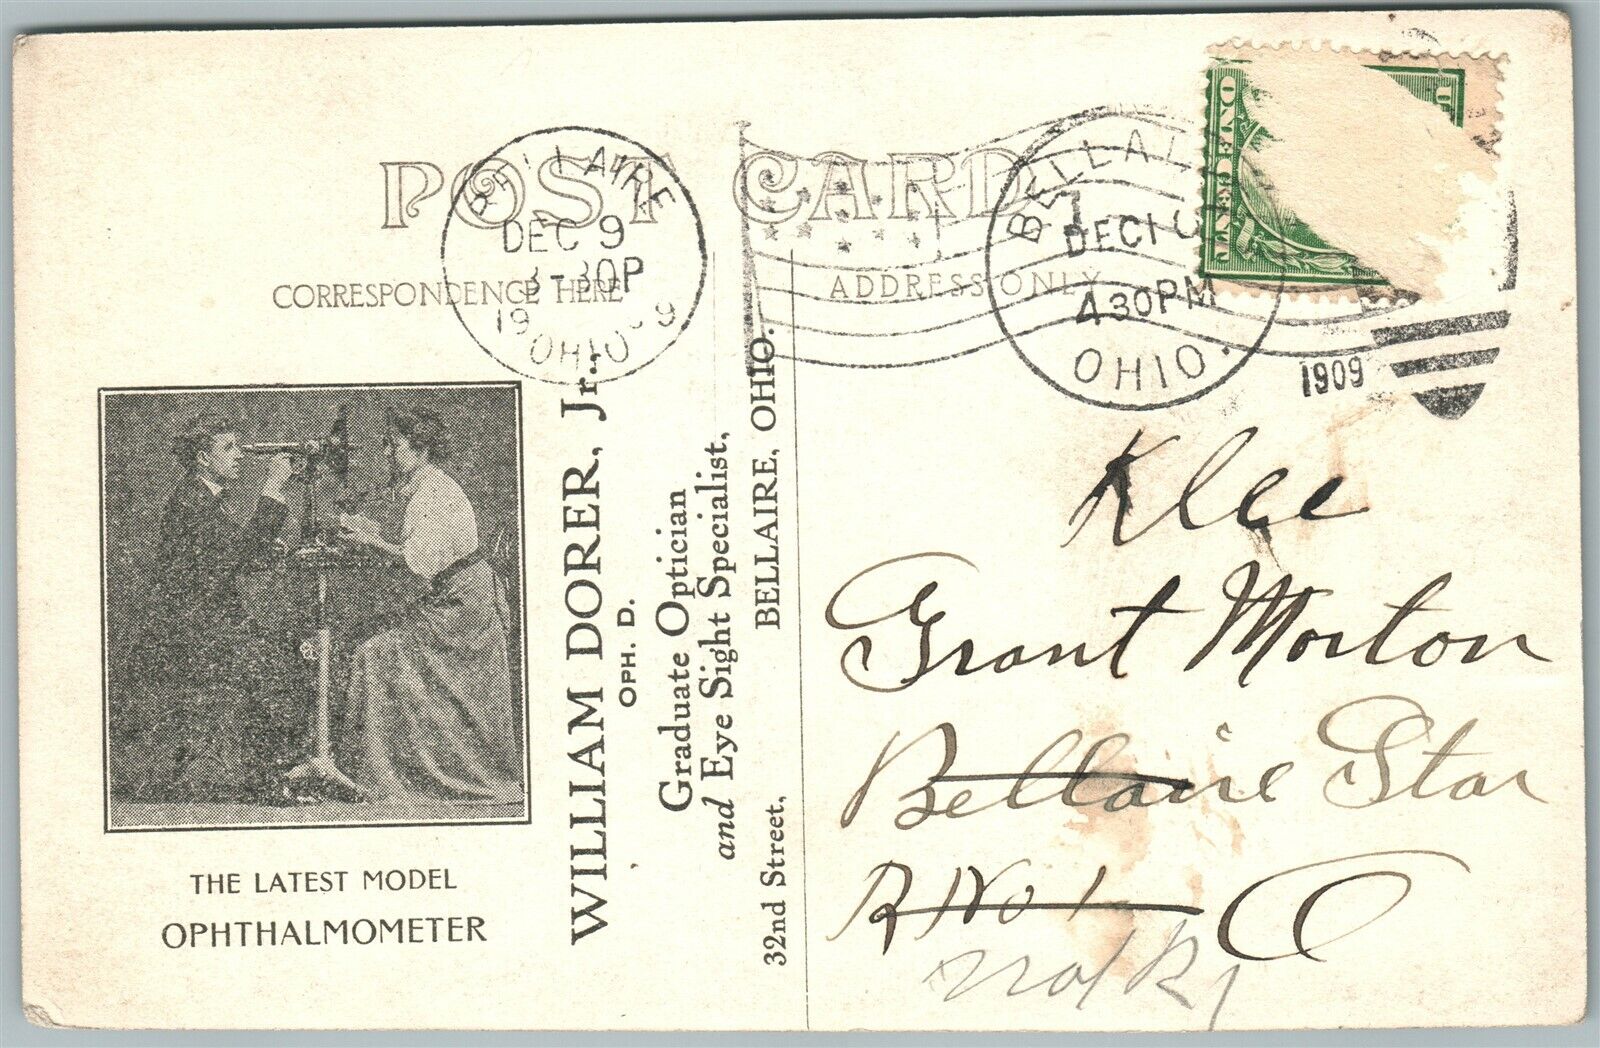 POST CARD
CORRESPONDENCE HERE
ADDRESS ONLY
LLAIRE
DEC 9
3-30P
19 9
OHIO
BELLAI
DEC 1
430PM
OHIO.
1909
ONE CENT
THE LATEST MODEL
OPHTHALMOMETER
WILLIAM DORER, Jr.,
OPH. D.
Graduate Optician
and Eye Sight Specialist,
32nd Street, BELLAIRE, OHIO.
Klee
Grant Morton
Bellaire Star
R No 1 O
not R 1